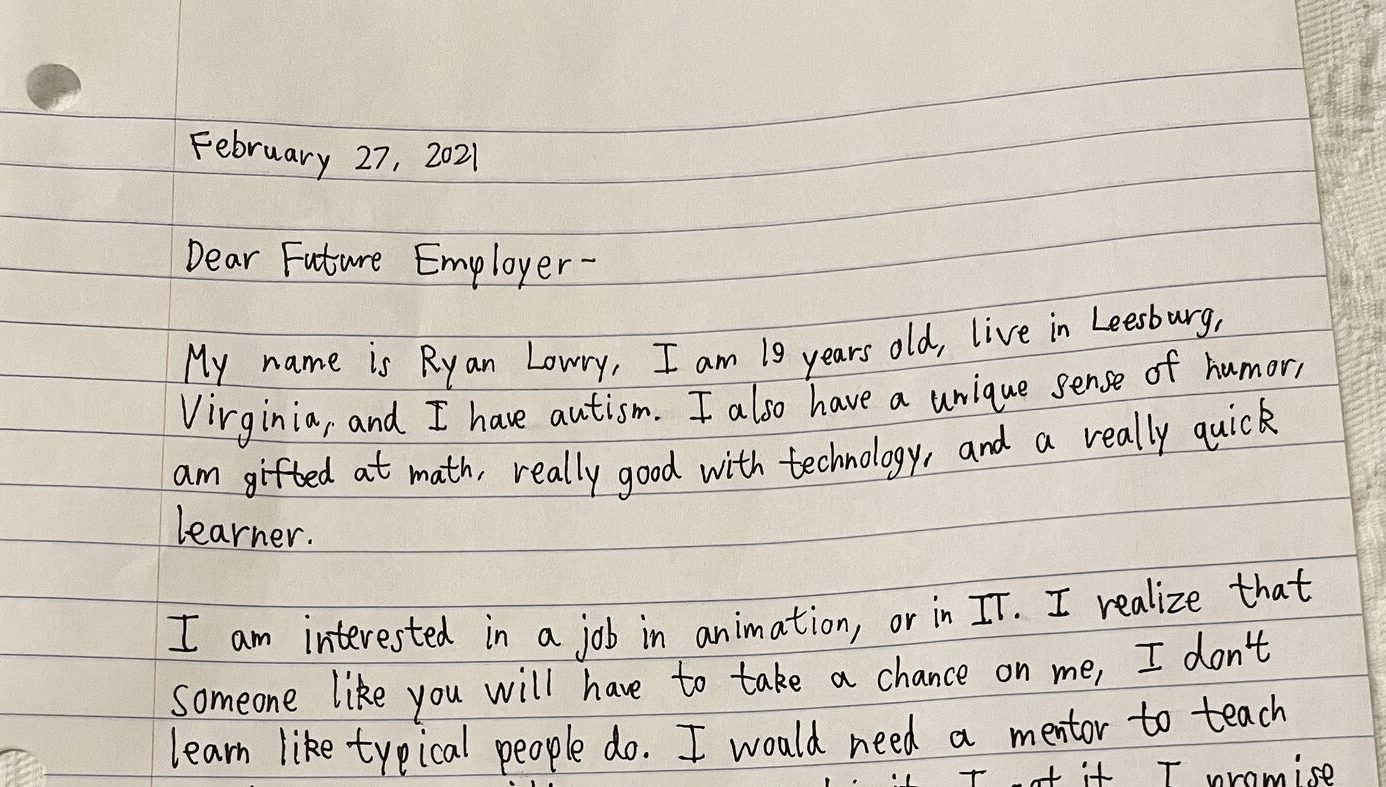 February 27, 2021
Dear Future Employer-
My name is Ryan Lowry, I am 19 years old, live in Leesburg,
Virginia, and I have autism. I also have a unique sense of humor,
am gifted at math, really good with technology, and a really quick
learner.
I am interested in a job in animation, or in IT. I realize that
someone like you will have to take a chance on me, I don't
learn like typical people do. I would need a mentor to teach
it, I get it, I promise